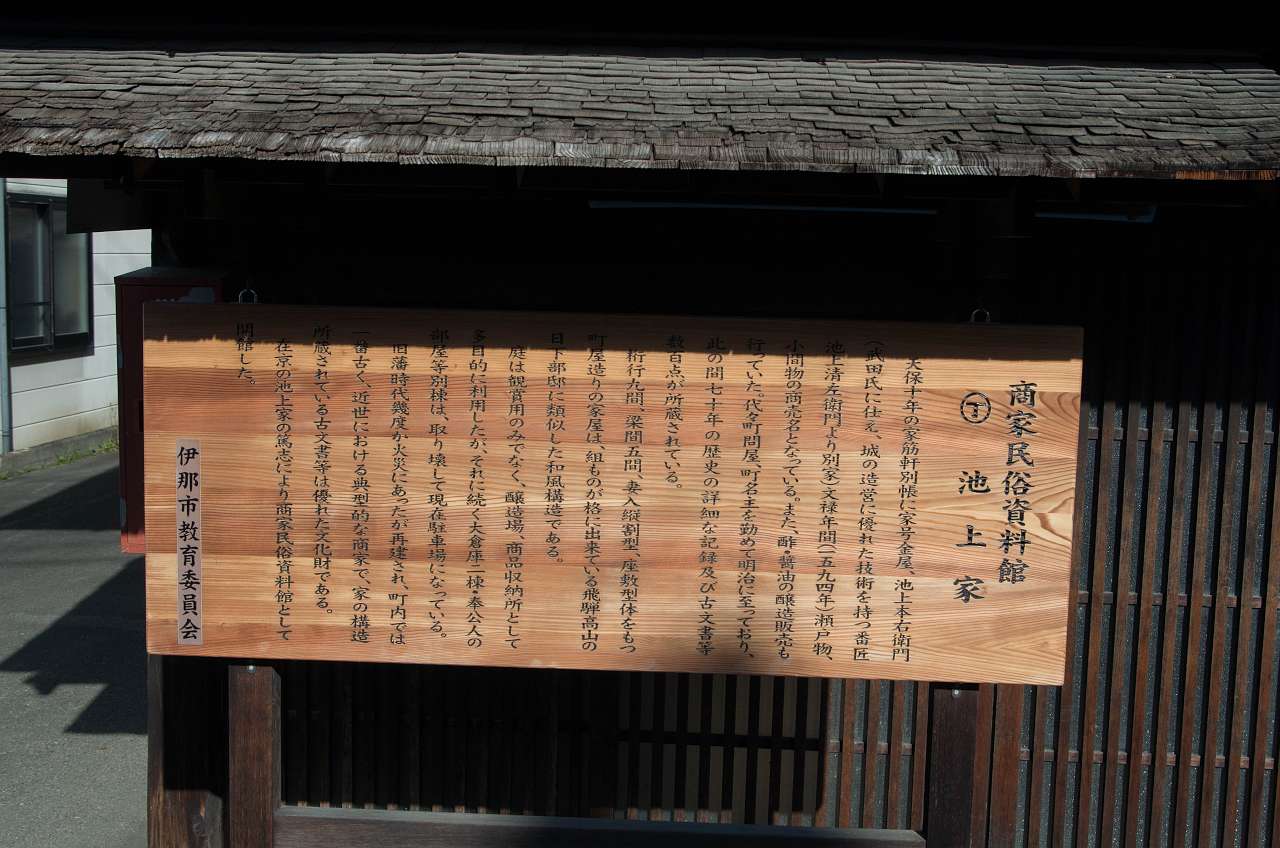 商家民俗資料館
丁 池上家
天保十年の家筋軒別帳に家号金屋、池上本右衛門
(武田氏に仕え、城の造営に優れた技術を持つ番匠
池上清左衛門より別家)文禄年間(一五九四年)瀬戸物、
小間物の商売名となっている。また、酢・醤油の醸造販売も
行っていた。代々町問屋、町名主を勤めて明治に至っており、
此の間七十年の歴史の詳細な記録及び古文書等
数百点が所蔵されている。
桁行九間、梁間五間、妻入縦割型、座敷型主体をもつ
町屋造りの家屋は、組ものが格に出来ている飛騨高山の
日下部邸に類似した和風構造である。
庭は観賞用のみでなく、醸造場、商品収納所として
多目的に利用したが、それに続く大倉庫二棟・奉公人の
部屋等別棟は、取り壊して現在駐車場になっている。
旧藩時代幾度か火災にあったが再建され、町内では
一番古く、近世における典型的な商家で、家の構造
所蔵されている古文書等は優れた文化財である。
在京の池上家の篤志により商家民俗資料館として
開館した。
伊那市教育委員会